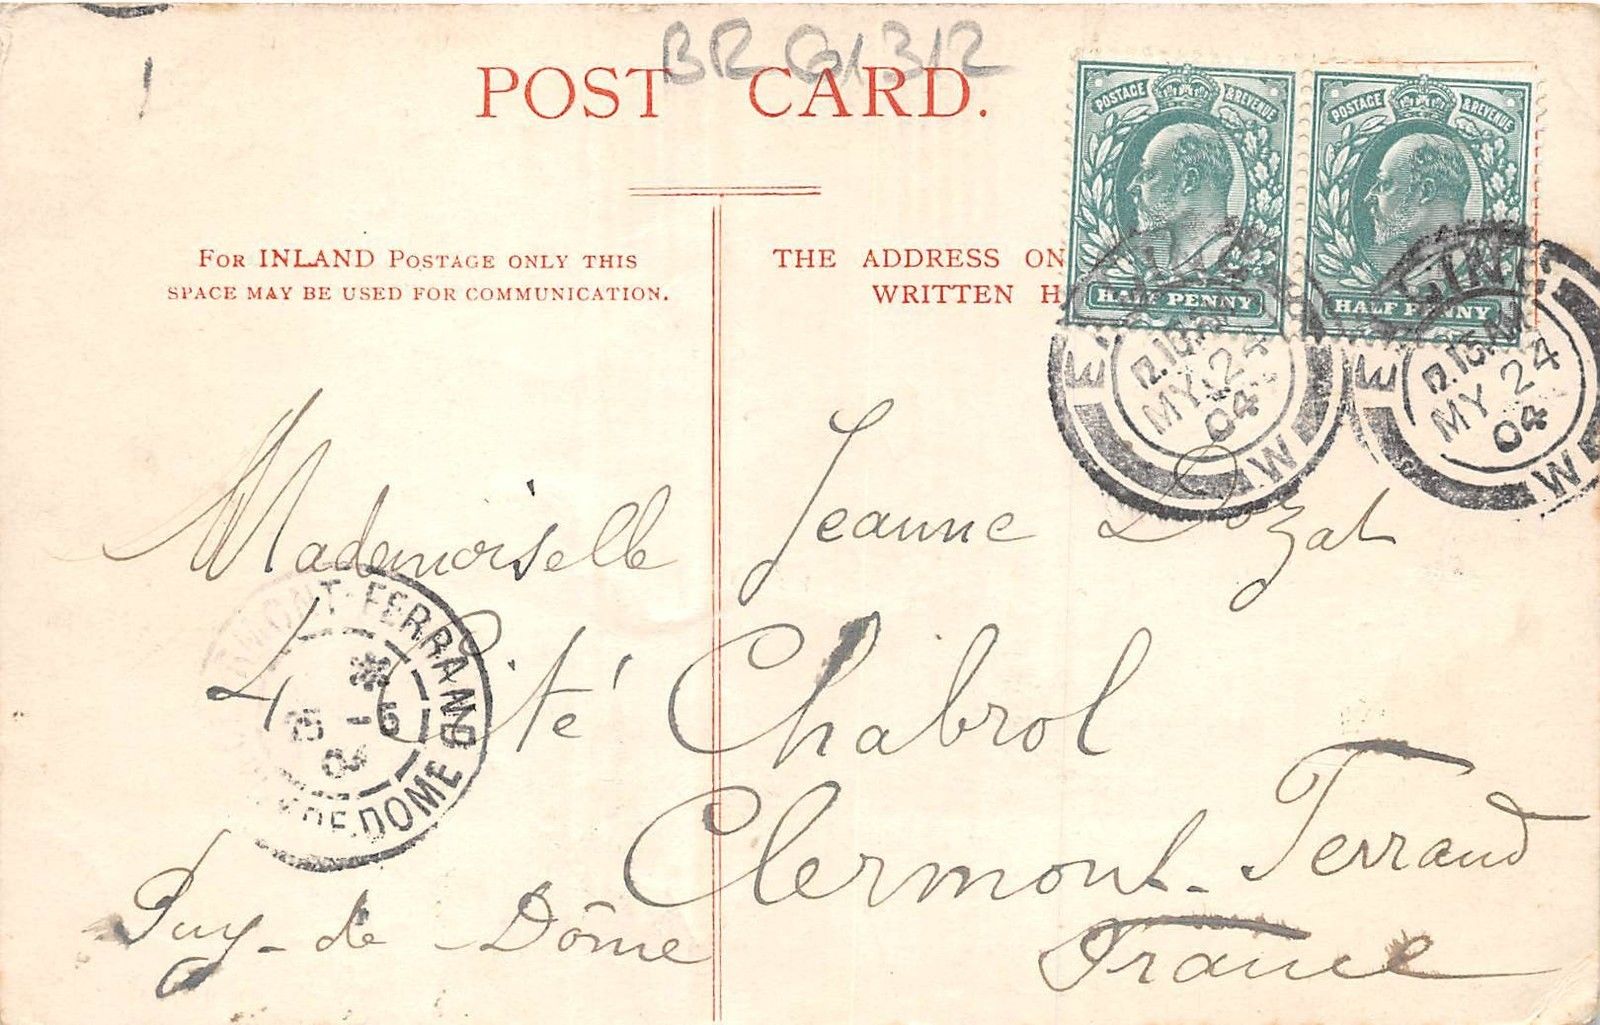 BR G1312
POST CARD.
POSTAGE & REVENUE
HALF PENNY
POSTAGE & REVENUE
HALF PENNY
For INLAND Postage only this
space may be used for communication.
THE ADDRESS ON
WRITTEN H
EALING
12.15AM
MY 24
04
W
EALING
12.15AM
MY 24
04
W
Mademoiselle Jeanne Dozat
4 Cité Chabrol
Clermont-Ferrand
Puy-de-Dôme
France
MONT-FERRAND
25 -5
04
DE-DOME